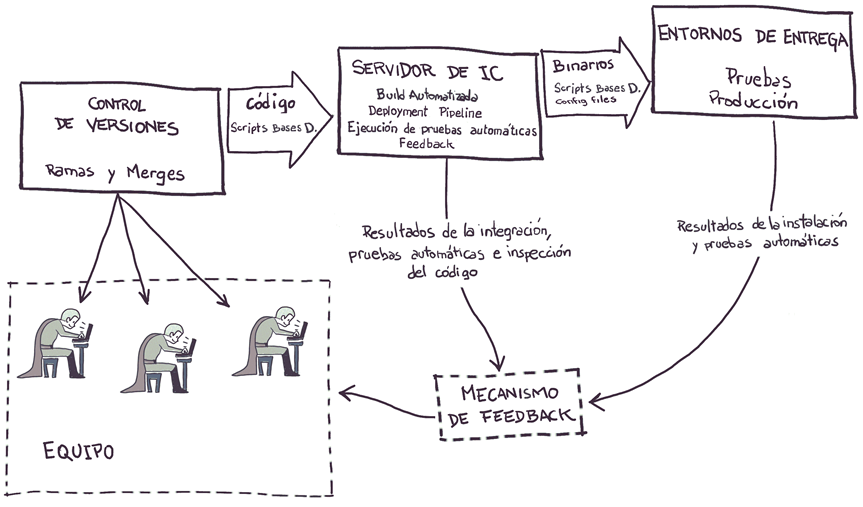 CONTROL
DE VERSIONES
Ramas y Merges
Código
Scripts Bases D.
SERVIDOR DE IC
Build Automatizada
Deployment Pipeline
Ejecución de pruebas automáticas
Feedback
Binarios
Scripts Bases D.
Config files
ENTORNOS DE ENTREGA
Pruebas
Producción
Resultados de la integración,
pruebas automáticas e inspección
del código
Resultados de la instalación
y pruebas automáticas
MECANISMO
DE FEEDBACK
EQUIPO